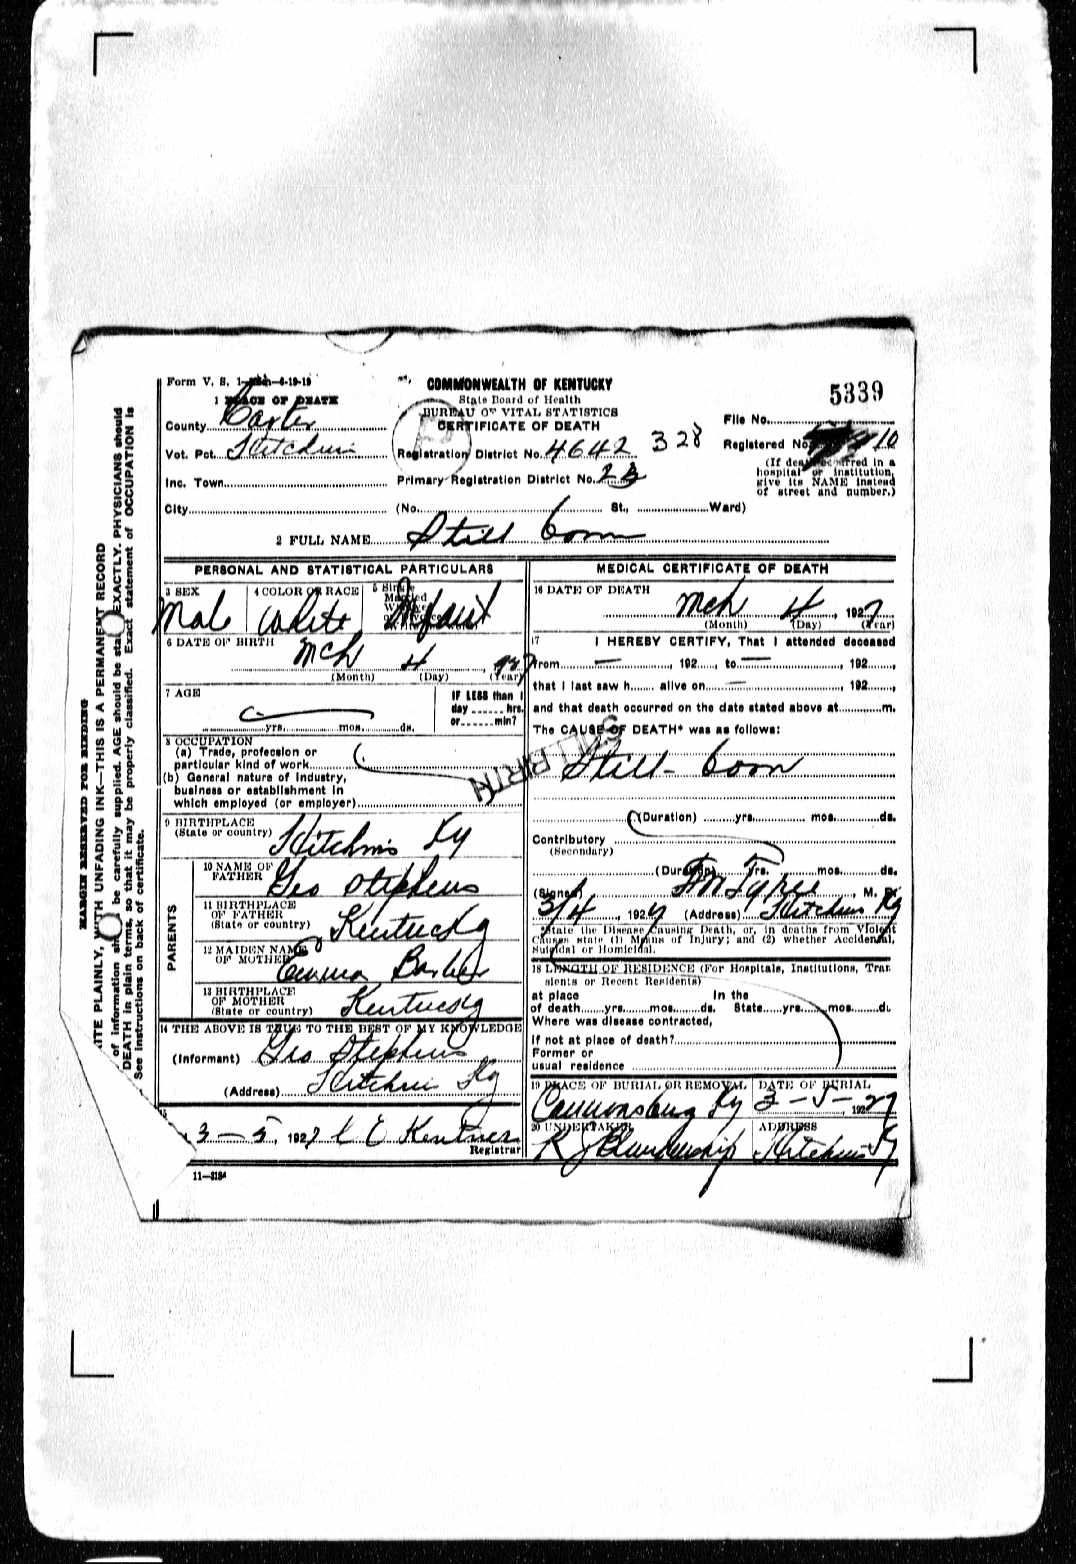 Form V. S. 1—  —6-19-19
COMMONWEALTH OF KENTUCKY
State Board of Health
BUREAU OF VITAL STATISTICS
CERTIFICATE OF DEATH
5339
1 PLACE OF DEATH
County Carter
Vot. Pct. Hitchins
Inc. Town
City
Registration District No. 4642 328
Primary Registration District No. 23
(No. St., Ward)
File No.
Registered No. 10
(If death occurred in a
hospital or institution,
give its NAME instead
of street and number.)
2 FULL NAME Still born
PERSONAL AND STATISTICAL PARTICULARS
3 SEX
Male
4 COLOR OR RACE
White
5 Single
Married
Infant
6 DATE OF BIRTH
Mch 4, 1927
(Month) (Day) (Year)
7 AGE
yrs. mos. ds.
IF LESS than 1
day hrs.
or min?
8 OCCUPATION
(a) Trade, profession or
particular kind of work
(b) General nature of industry,
business or establishment in
which employed (or employer)
STILLBIRTH
9 BIRTHPLACE
(State or country) Hitchins Ky
PARENTS
10 NAME OF
FATHER Geo Stephens
11 BIRTHPLACE
OF FATHER
(State or country) Kentucky
12 MAIDEN NAME
OF MOTHER Emma Barber
13 BIRTHPLACE
OF MOTHER
(State or country) Kentucky
14 THE ABOVE IS TRUE TO THE BEST OF MY KNOWLEDGE
(Informant) Geo Stephens
(Address) Hitchins Ky
15
3-5, 1927 Registrar
MEDICAL CERTIFICATE OF DEATH
16 DATE OF DEATH
Mch 4, 1927
(Month) (Day) (Year)
17 I HEREBY CERTIFY, That I attended deceased
from — , 192 , to — , 192 ,
that I last saw h alive on — , 192 ,
and that death occurred on the date stated above at m.
The CAUSE OF DEATH* was as follows:
Still-born
(Duration) yrs. mos. ds.
Contributory
(Secondary)
(Duration) yrs. mos. ds.
(Signed) , M. D.
3/4, 1927 (Address) Hitchins Ky
*State the Disease Causing Death, or, in deaths from Violent
Causes state (1) Means of Injury; and (2) whether Accidental,
Suicidal or Homicidal.
18 LENGTH OF RESIDENCE (For Hospitals, Institutions, Tran
sients or Recent Residents)
at place In the
of death yrs. mos. ds. State yrs. mos. ds.
Where was disease contracted,
If not at place of death?
Former or
usual residence
19 PLACE OF BURIAL OR REMOVAL
Cannonsburg Ky
DATE OF BURIAL
3-5-, 1927
20 UNDERTAKER
R J
ADDRESS
Hitchins Ky
11—3184
MARGIN RESERVED FOR BINDING
ITE PLAINLY, WITH UNFADING INK—THIS IS A PERMANENT RECORD
of information should be carefully supplied. AGE should be stated EXACTLY. PHYSICIANS should
DEATH in plain terms, so that it may be properly classified. Exact statement of OCCUPATION is
See instructions on back of certificate.